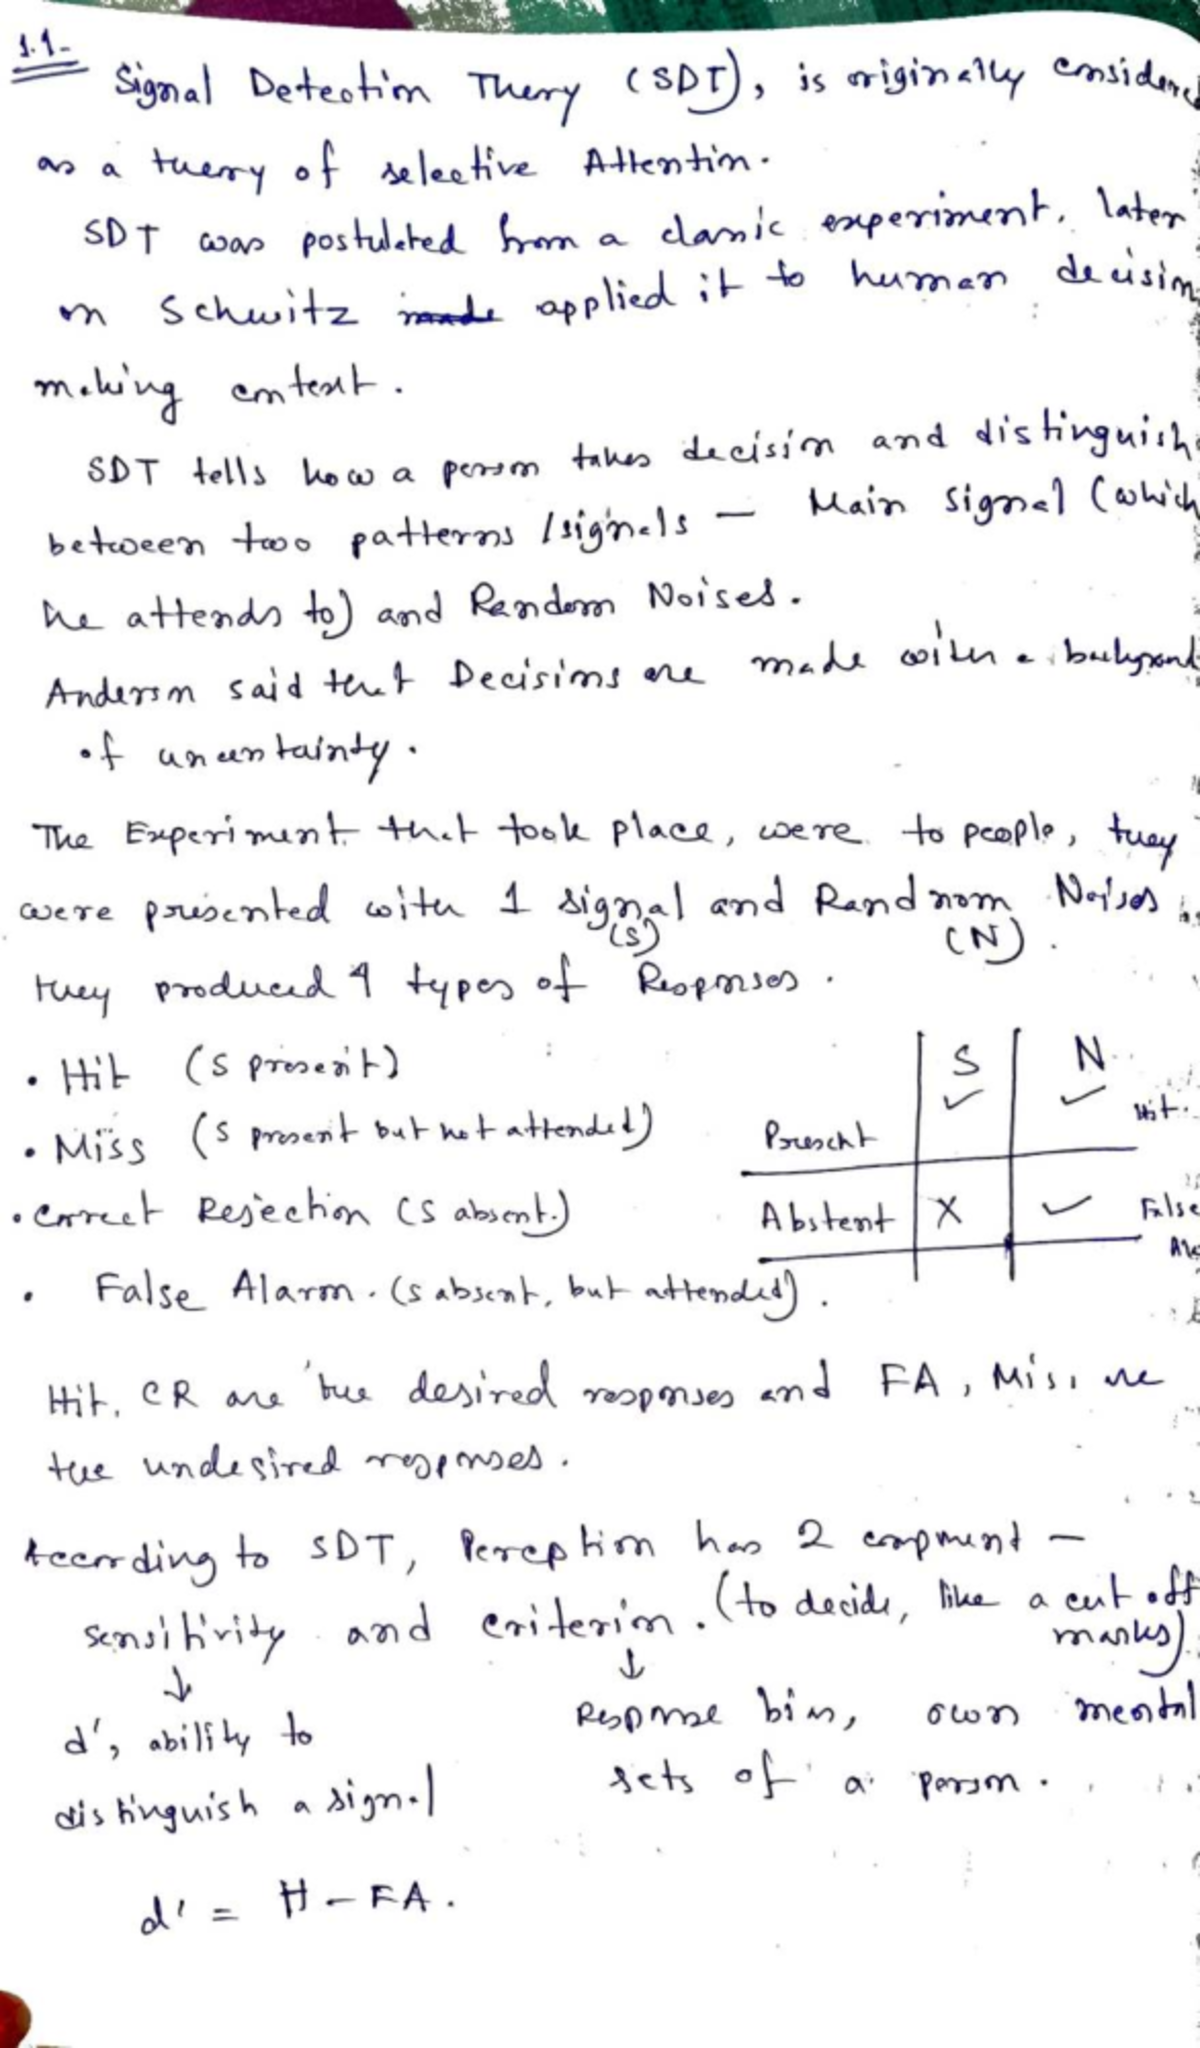 1.1-
Signal Detection Theory (SDT), is originally considered
as a theory of selective Attention.
SDT was postulated from a classic experiment. later
on Schwitz made applied it to human decision
making context.
SDT tells how a person takes decision and distinguish
between two patterns / signals — Main signal (which
he attends to) and Random Noises.
Anderson said that Decisions are made with a background
of uncertainty.
The Experiment that took place, were to people, they
were presented with 1 signal and Randnom Noises
(S) (N).
they produced 4 types of Responses.
• Hit (S present)
• Miss (S present but not attended)
• Correct Rejection (S absent.)
• False Alarm. (S absent, but attended).
S N
Present ✓ ✓ Hit.
Abstent X ✓ False
Ala
Hit, CR are the desired responses and FA, Miss are
the undesired responses.
According to SDT, Perception has 2 component —
sensitivity and criterion. (to decide, like a cut off
marks)
↓ ↓
d', ability to
distinguish a signal
Response bias, own mental
sets of a person.
d' = H - FA.